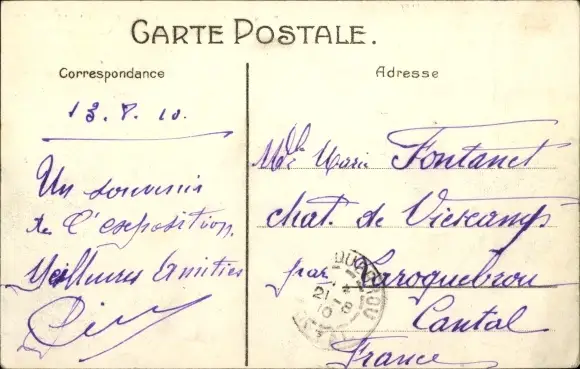 CARTE POSTALE.
Correspondance
13.8.10.
Un souvenir
de l'exposition.
Meilleures Amitiés
Adresse
Mlle Marie Fontanet
chat. de Viescamp
par Laroquebrou
Cantal
France
21-8
10